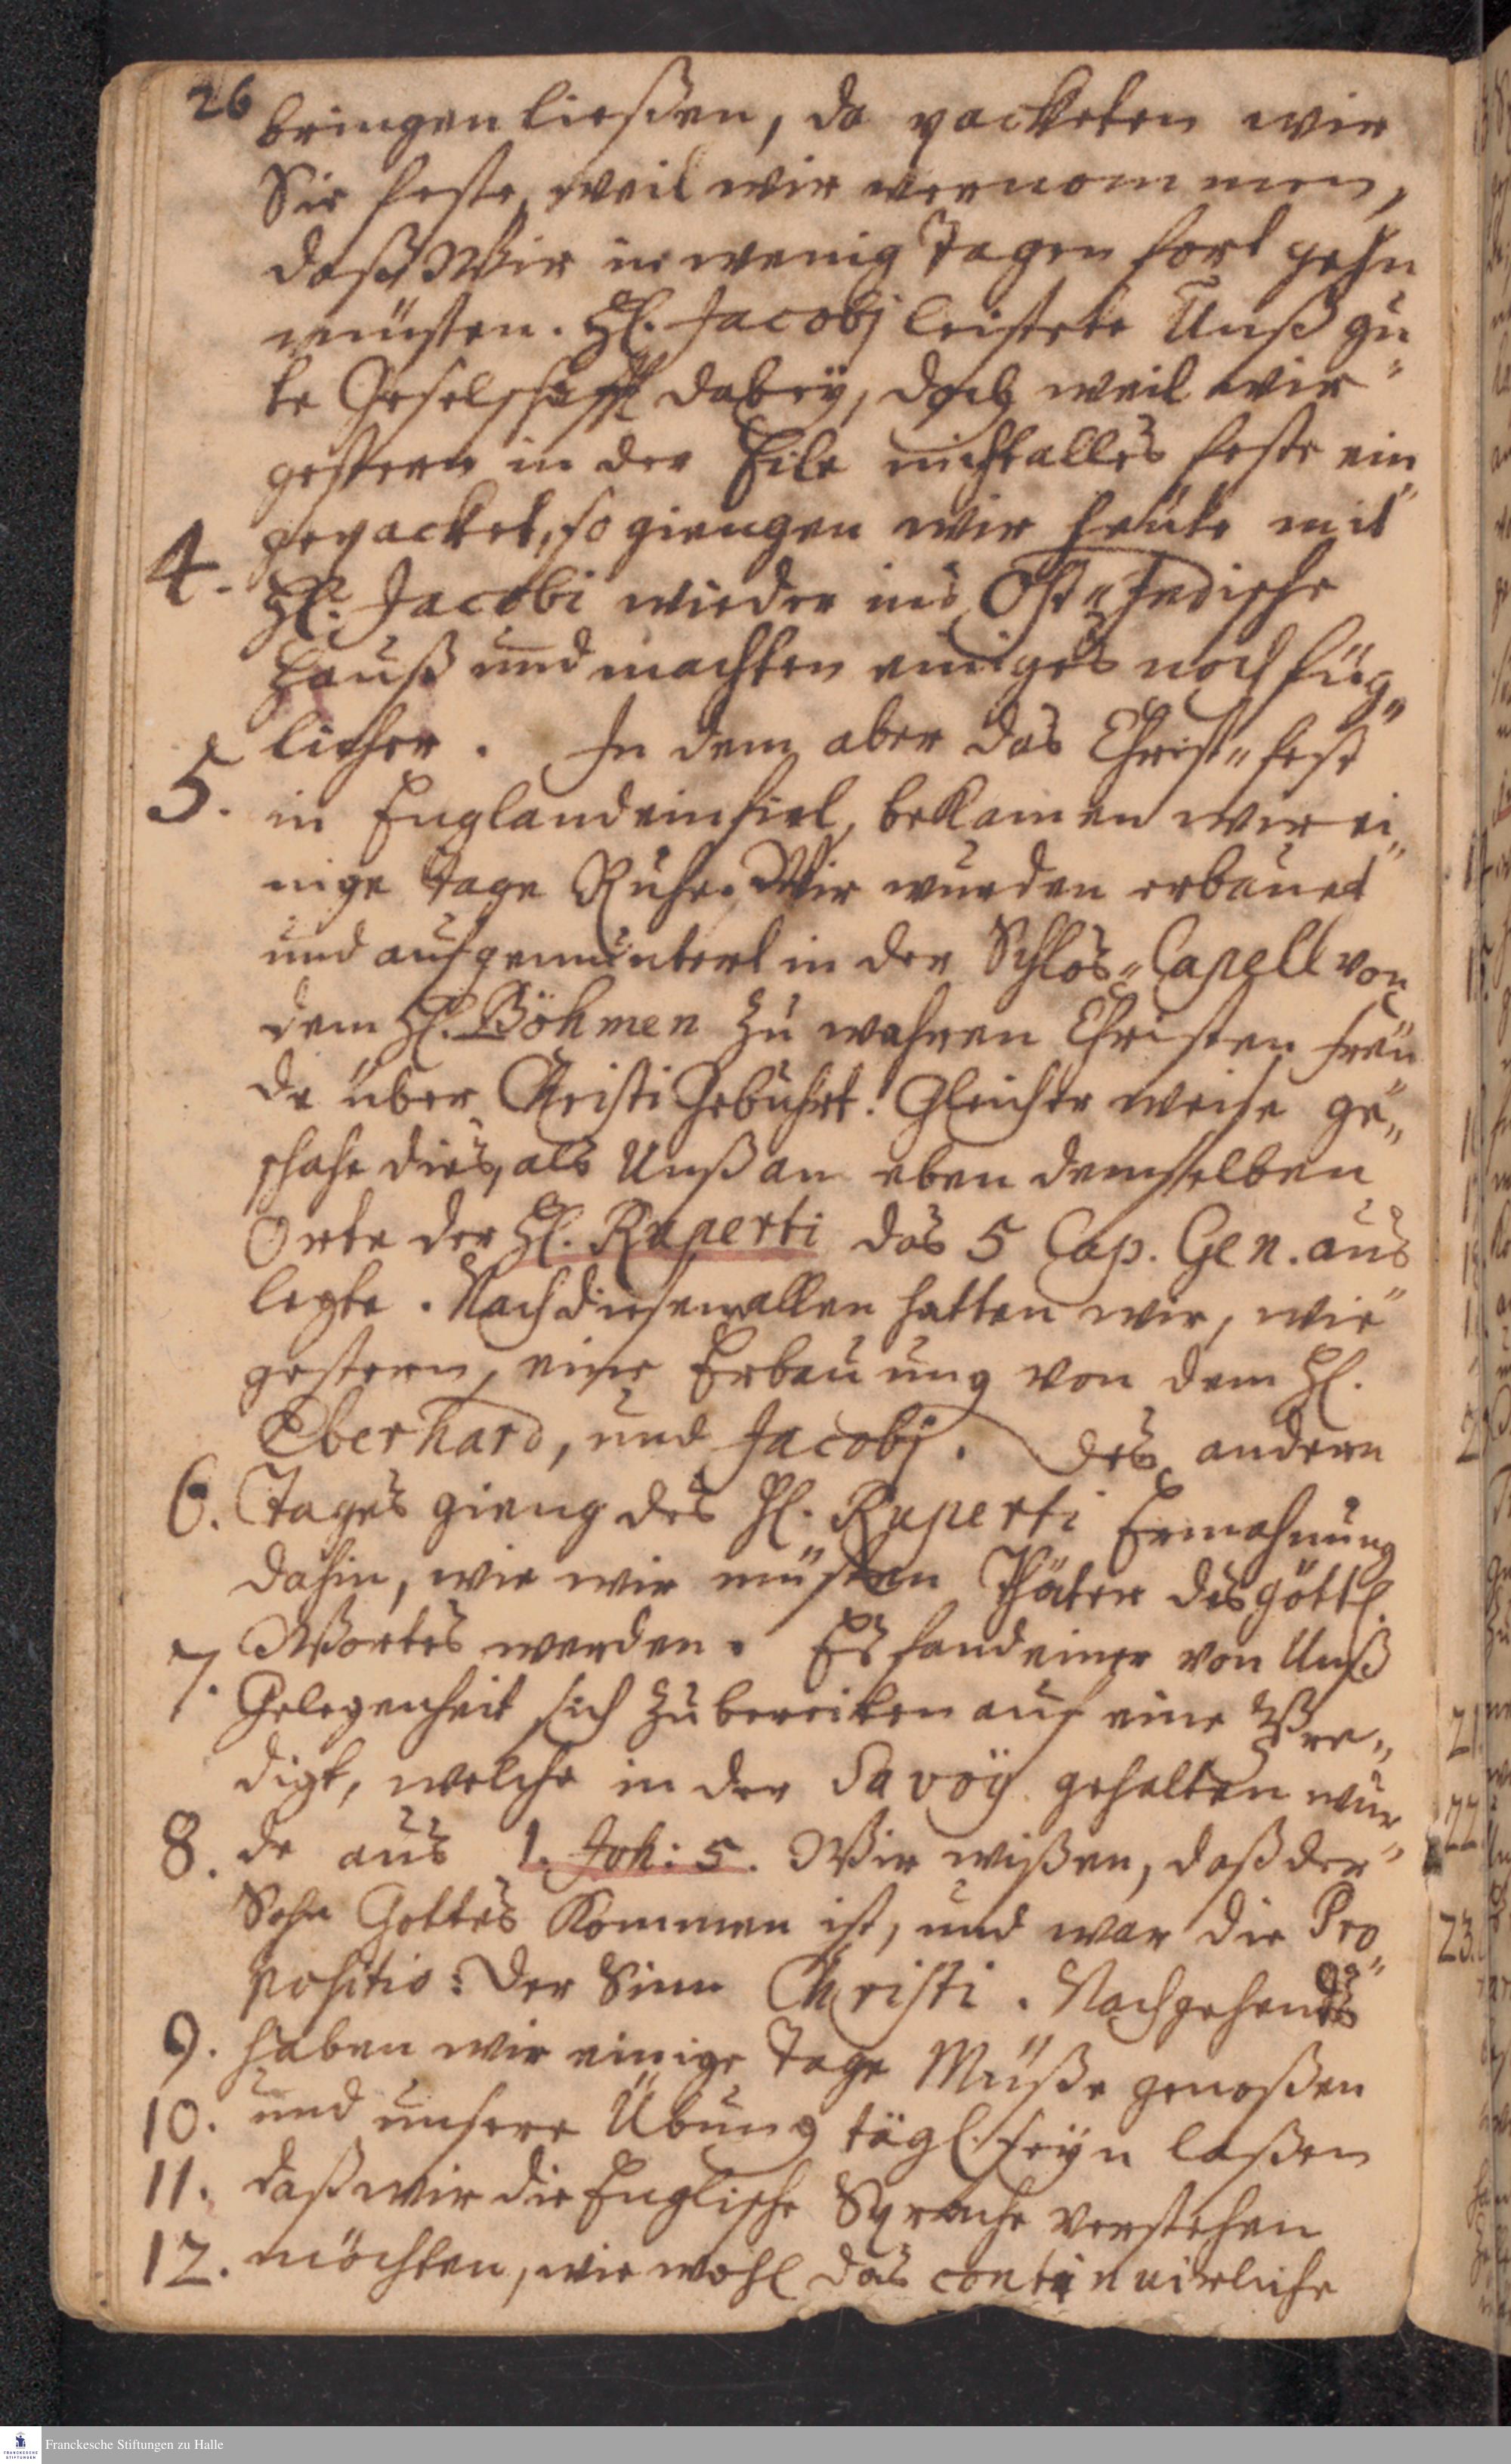 26
bringen ließen, da packeten wir
Sie feste, weil wir vernommen,
daß Wir in wenig Tagen fort gehn
müsten. H. Jacobj leistete Unß gu„
te Geselschafft dabey, doch weil wir
gestern in der Eile nicht alles feste ein„
gepacket, so giengen wir heute mit
4. H. Jacobi wieder ins Ost„Indische
Hauß und machten einiges noch füg„
licher. In dem aber das Christ„fest
5. in England einfiel, bekamen wir ei„
nige Tage Ruhe. Wir wurden erbauet
und aufgemuntert in der Schlos„Capell von
dem H. Böhmen zu wahren Christen freu
de über Christi Gebuhrt. Gleicher weise ge„
schahe dies, als Unß an eben demselben
Orte der H. Ruperti das 5 Cap. Gen. aus„
legte. Nach diesem allen hatten wir, wie
gestern, eine Erbauung von dem H.
Eberhard, und Jacobj. Des andern
6. Tages gieng des H. Ruperti Ermahnung
dahin, wie wir müsten Thäter des göttl.
Wortes werden. Es fand einer von Unß
7. Gelegenheit sich zubereiten auf eine Pre„
digt, welche in der Savoÿ gehalten wur„
8. de aus 1. Joh: 5. Wir wißen, daß der
Sohn Gottes Kommen ist, und war die Pro„
positio: Der Sinn Christi. Nachgehends
9. haben wir einige Tage Müße genoßen
10. und unsere Übung tägl. seyn laßen
11. daß wir die Englische Sprache verstehen
12. möchten, wie wohl das continuirliche
Franckesche Stiftungen zu Halle